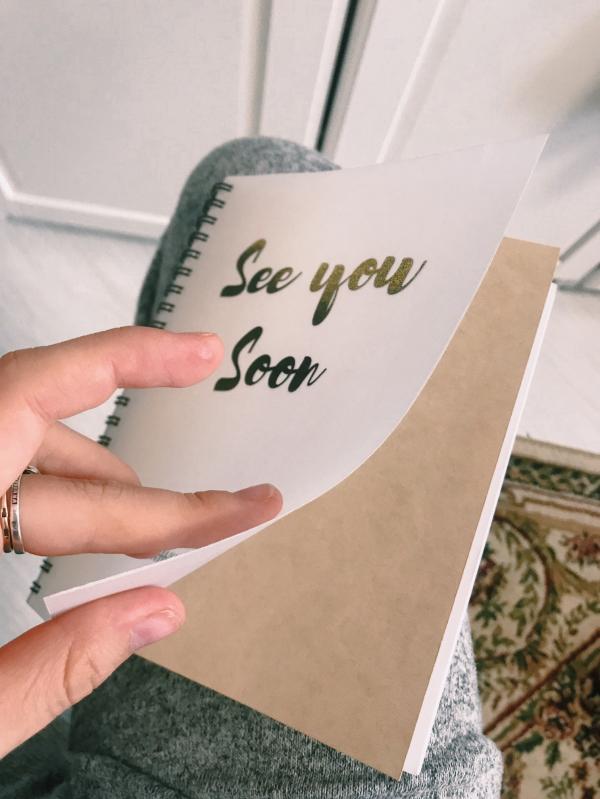 See you
Soon